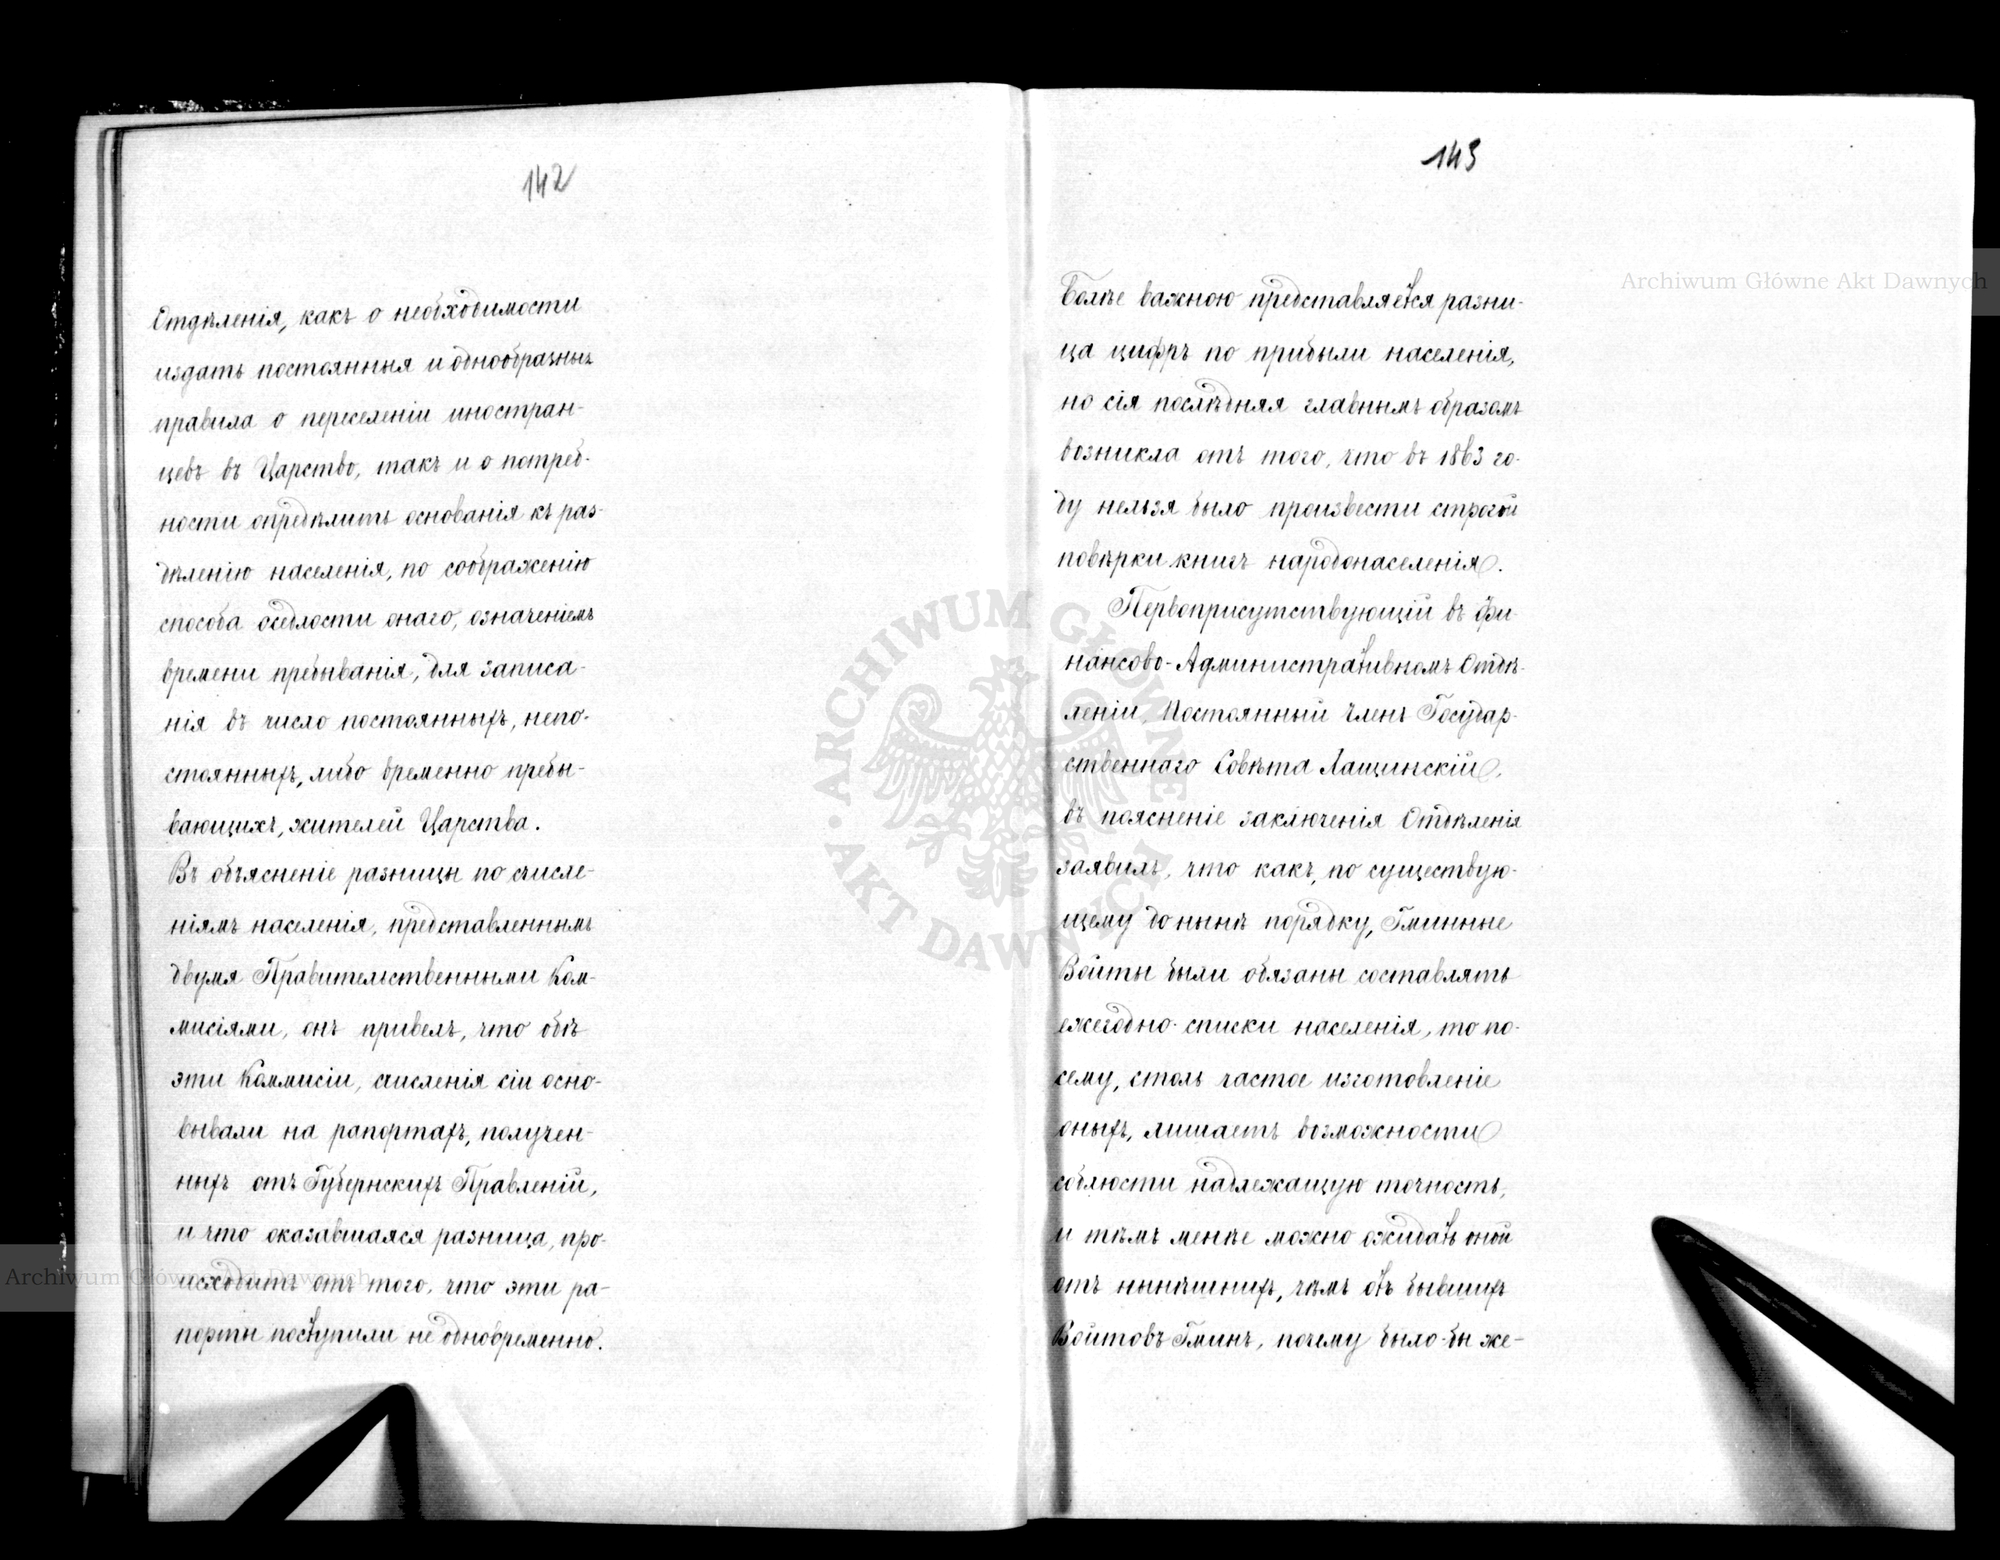 142
Отдѣленія, какъ о необходимости
издать постоянныя и однообразныя
правила о переселеніи иностран-
цевъ въ Царство, такъ и о потреб-
ности опредѣлить основанія къ раз-
дѣленію населенія, по соображенію
способа оседлости онаго, означеніемъ
времени пребыванія, для записа-
нія въ число постоянныхъ, непо-
стоянныхъ, либо временно пребы-
вающихъ, жителей Царства.
Въ объясненіе разницы по счисле-
ніямъ населенія, представленнымъ
двумя Правительственными Ком-
мисіями, онъ привелъ, что обѣ
эти Коммисіи, счисленія сіи осно-
вывали на рапортахъ, получен-
ныхъ отъ Губернскихъ Правленій,
и что оказавшаяся разница, про-
исходитъ отъ того, что эти ра-
порты поступили не одновременно.
143
Болѣе важною представляется разни-
ца цифръ по прибыли населенія,
но сія послѣдняя главнымъ образомъ
возникла отъ того, что въ 1863 го-
ду нельзя было произвести строгой
повѣрки книгъ народонаселенія.
Первоприсутствующій въ Фи-
нансово-Административномъ Отдѣ-
леніи, Постоянный Членъ Государ-
ственнаго Совѣта Лащинскій,
въ поясненіе заключенія Отдѣленія
заявилъ, что какъ, по существую-
щему до нынѣ порядку, Гминные
Войты были обязаны составлять
ежегодно списки населенія, то по-
сему, столь частое изготовленіе
оныхъ, лишаетъ возможности
соблюсти надлежащую точность,
и тѣмъ менѣе можно ожидать оной
отъ нынѣшнихъ, чѣмъ отъ бывшихъ
Войтовъ Гминъ, почему было-бы же-
Archiwum Główne Akt Dawnych
Archiwum Główne Akt Dawnych
ARCHIWUM GŁÓWNE AKT DAWNYCH